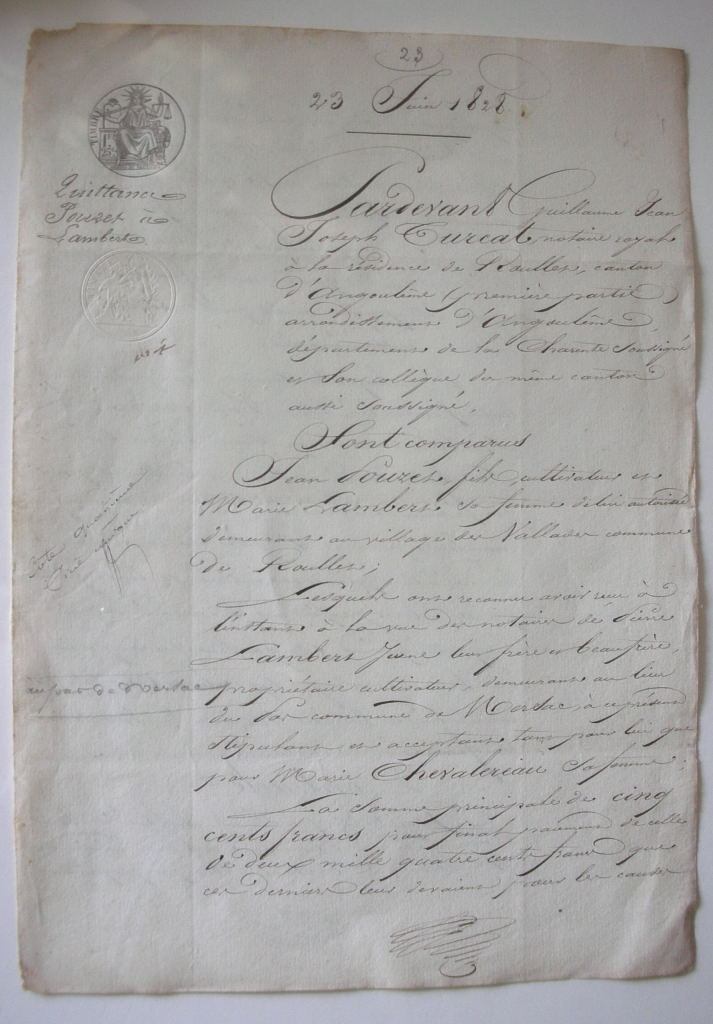 23
23 Juin 1828
TIMBRE
Quittance
Pouzet à
Lambert
Pardevant Guillaume Jean
Joseph Turcat, notaire royal
à la résidence de Roullet, canton
d'Angoulême (première partie)
arrondissement d'Angoulême,
département de la Charente soussigné
et son collègue du même canton
aussi soussigné,
Sont comparus
Jean Pouzet, fils, cultivateur et
Marie Lambert sa femme de lui autorisée
demeurant au village des Vallades commune
de Roullet;
Lesquels ont reconnu avoir reçu à
l'instant à la vue des notaires de Pierre
Lambert Jeune leur frère et beau frère,
propriétaire cultivateur, demeurant au lieu
du Pas commune de Mersac, à ce présent
stipulant et acceptant tant pour lui que
pour Marie Chevalereau sa femme;
La somme principale de cinq
cents francs pour final paiement de celle
de deux mille quatre cents francs que
ces derniers leur devaient pour les causes
au pas de Mersac